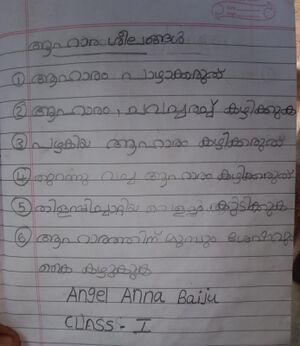 ആഹാര ശീലങ്ങൾ
① ആഹാരം പാഴാക്കരുത്
② ആഹാരം, ചവച്ചരച്ച് കഴിക്കുക
③ പഴകിയ ആഹാരം കഴിക്കരുത്
④ തുറന്നു വച്ച ആഹാരം കഴിക്കരുത്
⑤ തിളപ്പിച്ചാറ്റിയ വെള്ളം കുടിക്കുക
⑥ ആഹാരത്തിന് മുമ്പും ശേഷവും
കൈ കഴുകുക
Angel Anna Baiju
CLASS - I